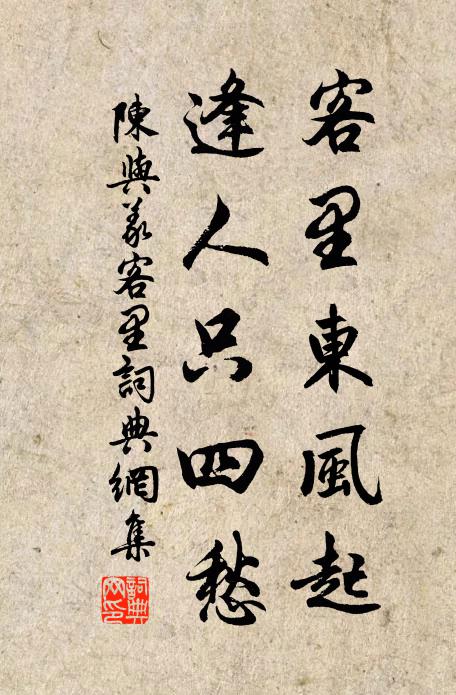 客里東風起
逢人只四愁
陳與義客里詞典網集
詞典網印